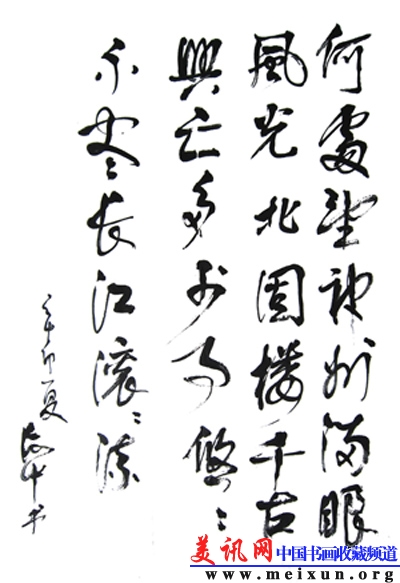 何處望神州滿眼
風光北固樓千古
興亡多少事悠〻
不尽長江滾〻流
辛卯夏
书
美讯网 中国书画收藏频道
www.meixun.org